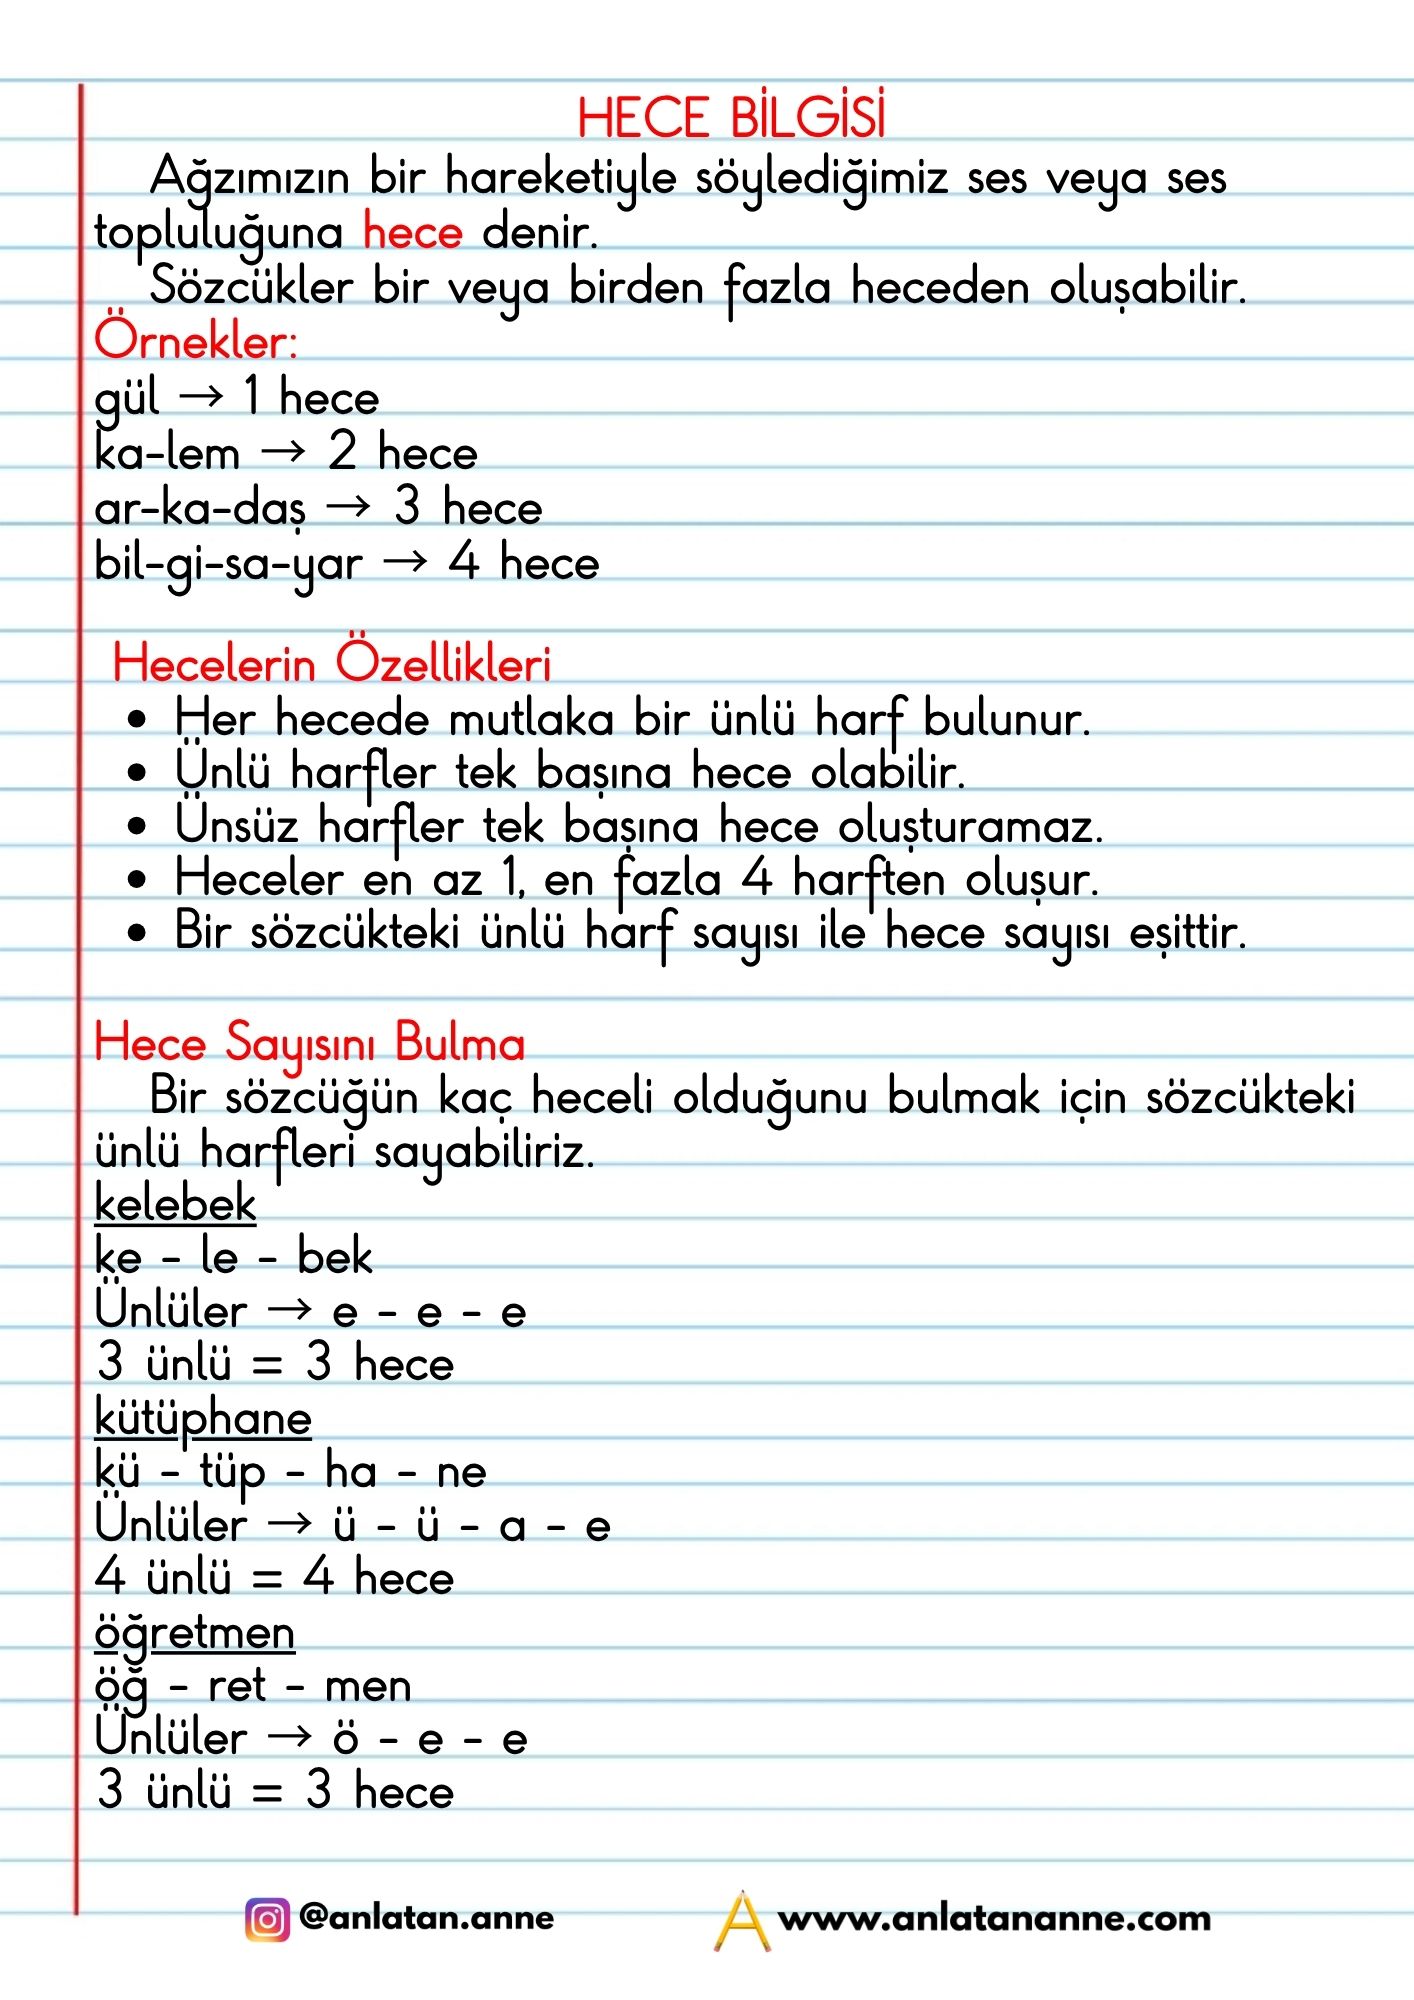 HECE BİLGİSİ
Ağzımızın bir hareketiyle söylediğimiz ses veya ses
topluluğuna hece denir.
Sözcükler bir veya birden fazla heceden oluşabilir.
Örnekler:
gül → 1 hece
ka-lem → 2 hece
ar-ka-daş → 3 hece
bil-gi-sa-yar → 4 hece
Hecelerin Özellikleri
• Her hecede mutlaka bir ünlü harf bulunur.
• Ünlü harfler tek başına hece olabilir.
• Ünsüz harfler tek başına hece oluşturamaz.
• Heceler en az 1, en fazla 4 harften oluşur.
• Bir sözcükteki ünlü harf sayısı ile hece sayısı eşittir.
Hece Sayısını Bulma
Bir sözcüğün kaç heceli olduğunu bulmak için sözcükteki
ünlü harfleri sayabiliriz.
kelebek
ke - le - bek
Ünlüler → e - e - e
3 ünlü = 3 hece
kütüphane
kü - tüp - ha - ne
Ünlüler → ü - ü - a - e
4 ünlü = 4 hece
öğretmen
öğ - ret - men
Ünlüler → ö - e - e
3 ünlü = 3 hece
@anlatan.anne www.anlatananne.com